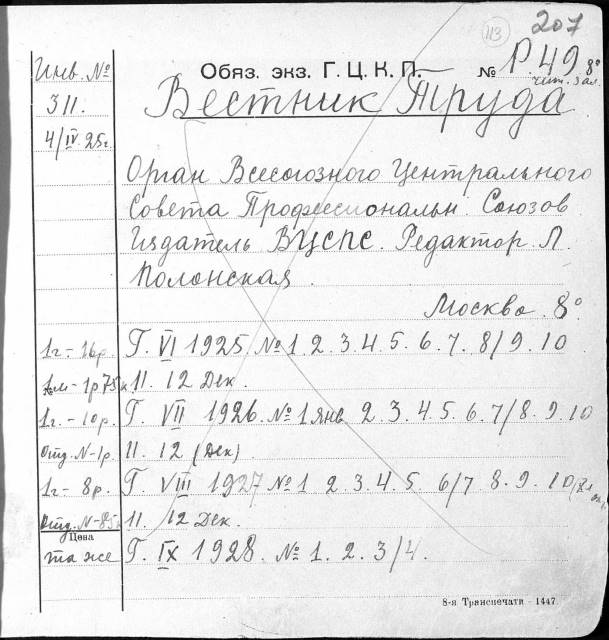 207
113
Инв. №
Обяз. экз. Г. Ц. К. П. № Р 49 8°
чит. зал.
311.
Вестник Труда
4/IV 25г.
Орган Всесоюзного Центрального
Совета Профессиональн. Союзов
Издатель ВЦСПС. Редактор Л.
Полонская.
Москва. 8°
1г. - 16р. Г. VI 1925 № 1. 2. 3. 4. 5. 6. 7. 8/9. 10
1р 75к 11. 12 Дек.
1г. - 10р. Г. VII 1926. № 1 янв 2. 3. 4. 5. 6. 7/8. 9. 10
Отд. N - 1р. 11. 12 (Дек)
1г - 8р. Г. VIII 1927 № 1 2. 3. 4. 5. 6/7 8. 9. 10
Отд. N - 85к 11. 12 Дек.
Цена
та же Г. IX 1928. № 1. 2. 3/4.
8-я Транспечати - 1447.